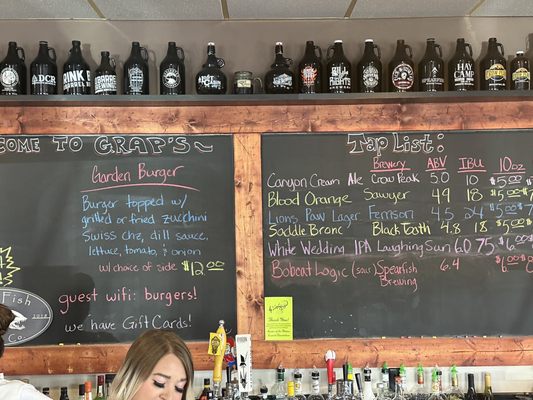 COME TO GRAP'S ~
Garden Burger
Burger topped w/
grilled or fried zucchini
Swiss chz, dill sauce,
lettuce, tomato, & onion
w/choice of side $12.00
guest wifi: burgers!
we have Gift Cards!
Fish
Co
Tap List:
Brewery ABV IBU 10oz
Canyon Cream Ale Crow Peak 5.0 10 $5.00
Blood Orange Sawyer 4.9 18 $5.00
Lions Paw Lager Fernson 4.5 24 $5.00
Saddle Bronc Black Tooth 4.8 18 $5.00
White Wedding IPA Laughing Sun 6.0 75 $6.00
Bobcat Logic (sour) Spearfish 6.4 $6.00
Brewing
HAY
CAMP